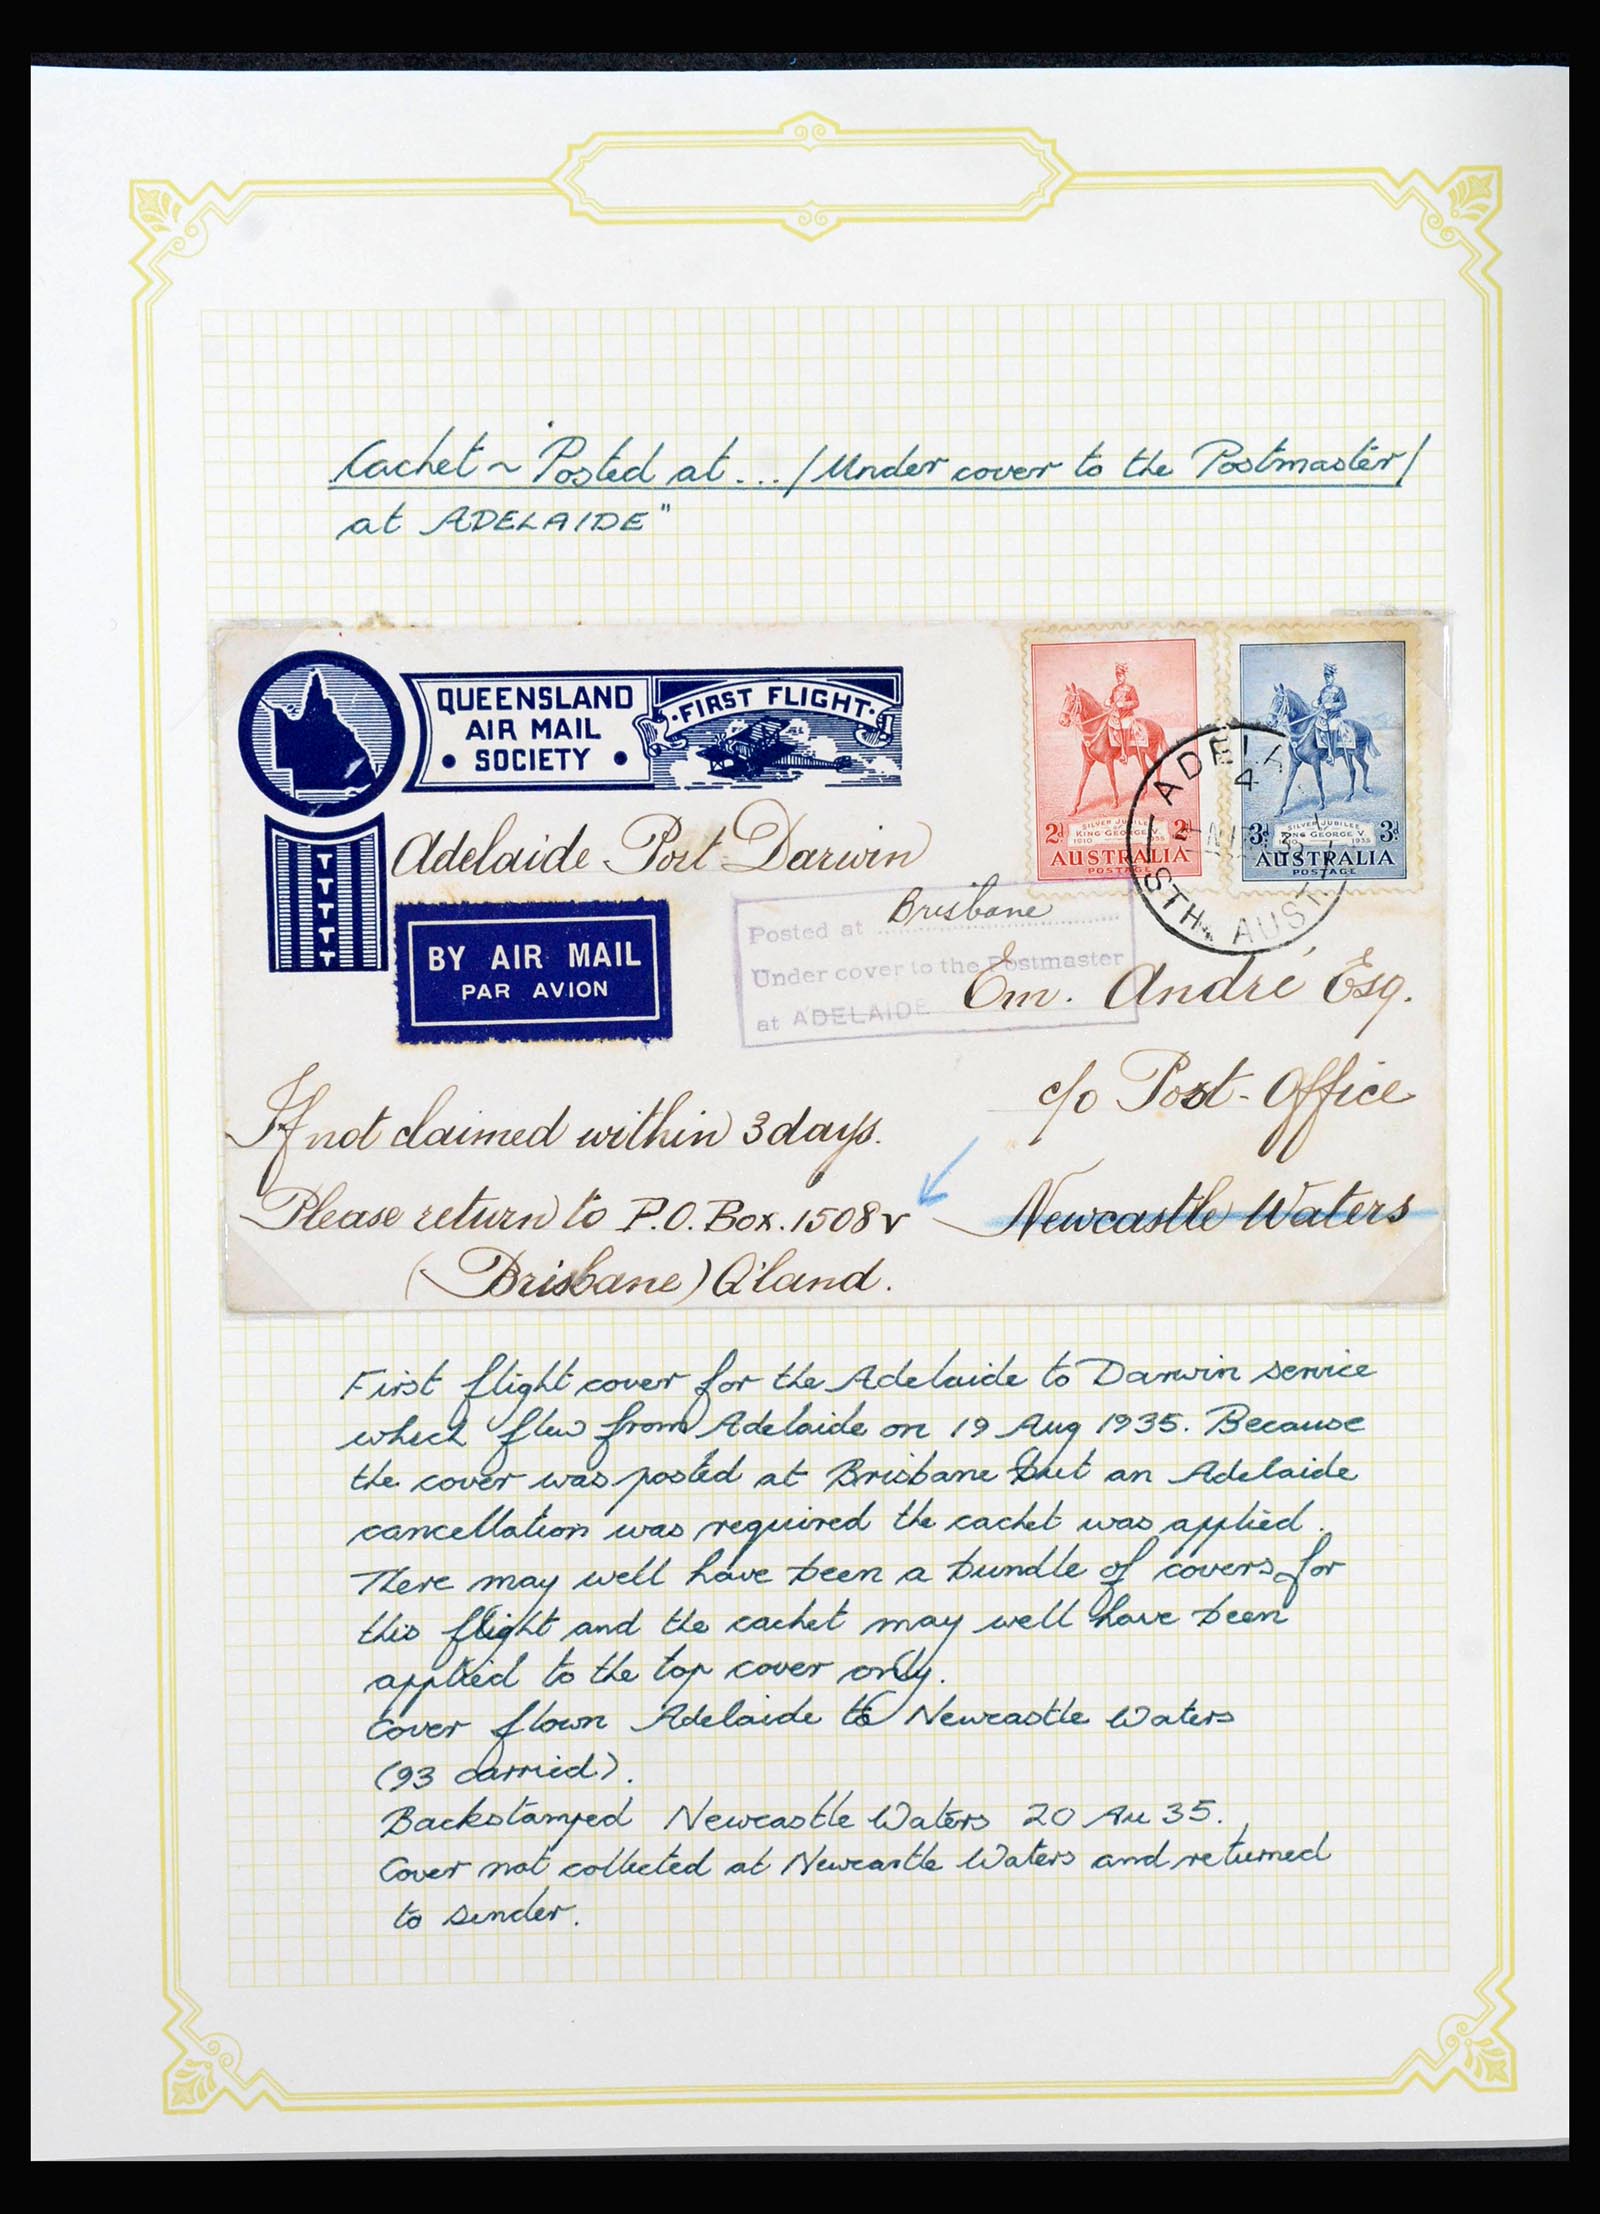 Cachet ~ "Posted at ... / Under cover to the Postmaster /
at ADELAIDE"
QUEENSLAND
AIR MAIL
• SOCIETY •
• FIRST FLIGHT •
SILVER JUBILEE
OF
KING GEORGE V.
1910 1935
2d 2d
AUSTRALIA
POSTAGE
SILVER JUBILEE
KING GEORGE V.
1935
3d 3d
AUSTRALIA
POSTAGE
ADEL
4
STH. AUST.
Adelaide - Port - Darwin
BY AIR MAIL
PAR AVION
Posted at Brisbane
Under cover to the Postmaster
at ADELAIDE
Em. André Esq.
c/o Post-Office
Newcastle Waters
If not claimed within 3 days.
Please return to P.O. Box. 1508 v
(Brisbane) Q'land.
First flight cover for the Adelaide to Darwin service
which flew from Adelaide on 19 Aug 1935. Because
the cover was posted at Brisbane but an Adelaide
cancellation was required the cachet was applied.
There may well have been a bundle of covers for
this flight and the cachet may well have been
applied to the top cover only.
Cover flown Adelaide to Newcastle Waters
(93 carried).
Backstamped Newcastle Waters 20 Au 35.
Cover not collected at Newcastle Waters and returned
to sender.